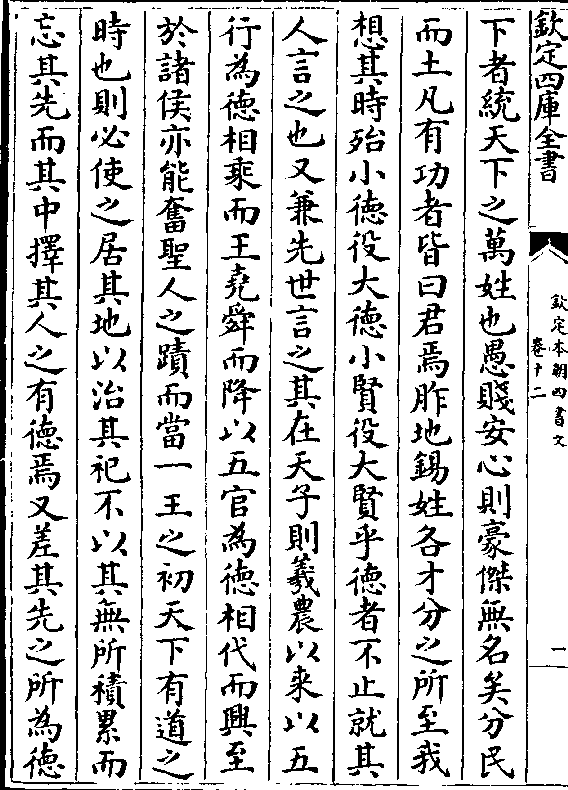 欽定四庫全書
欽定本朝四書文
卷十二
一
下者統天下之萬姓也愚賤安心則豪傑無名矣分民
而土凡有功者皆曰君焉胙地錫姓各才分之所至我
想其時殆小德役大德小賢役大賢乎德者不止就其
人言之也又兼先世言之其在天子則羲農以来以五
行為德相乘而王堯舜而降以五官為德相代而興至
於諸侯亦能奮聖人之蹟而當一王之初天下有道之
時也則必使之居其地以治其祀不以其無所積累而
忘其先而其中擇其人之有德焉又差其先之所為德